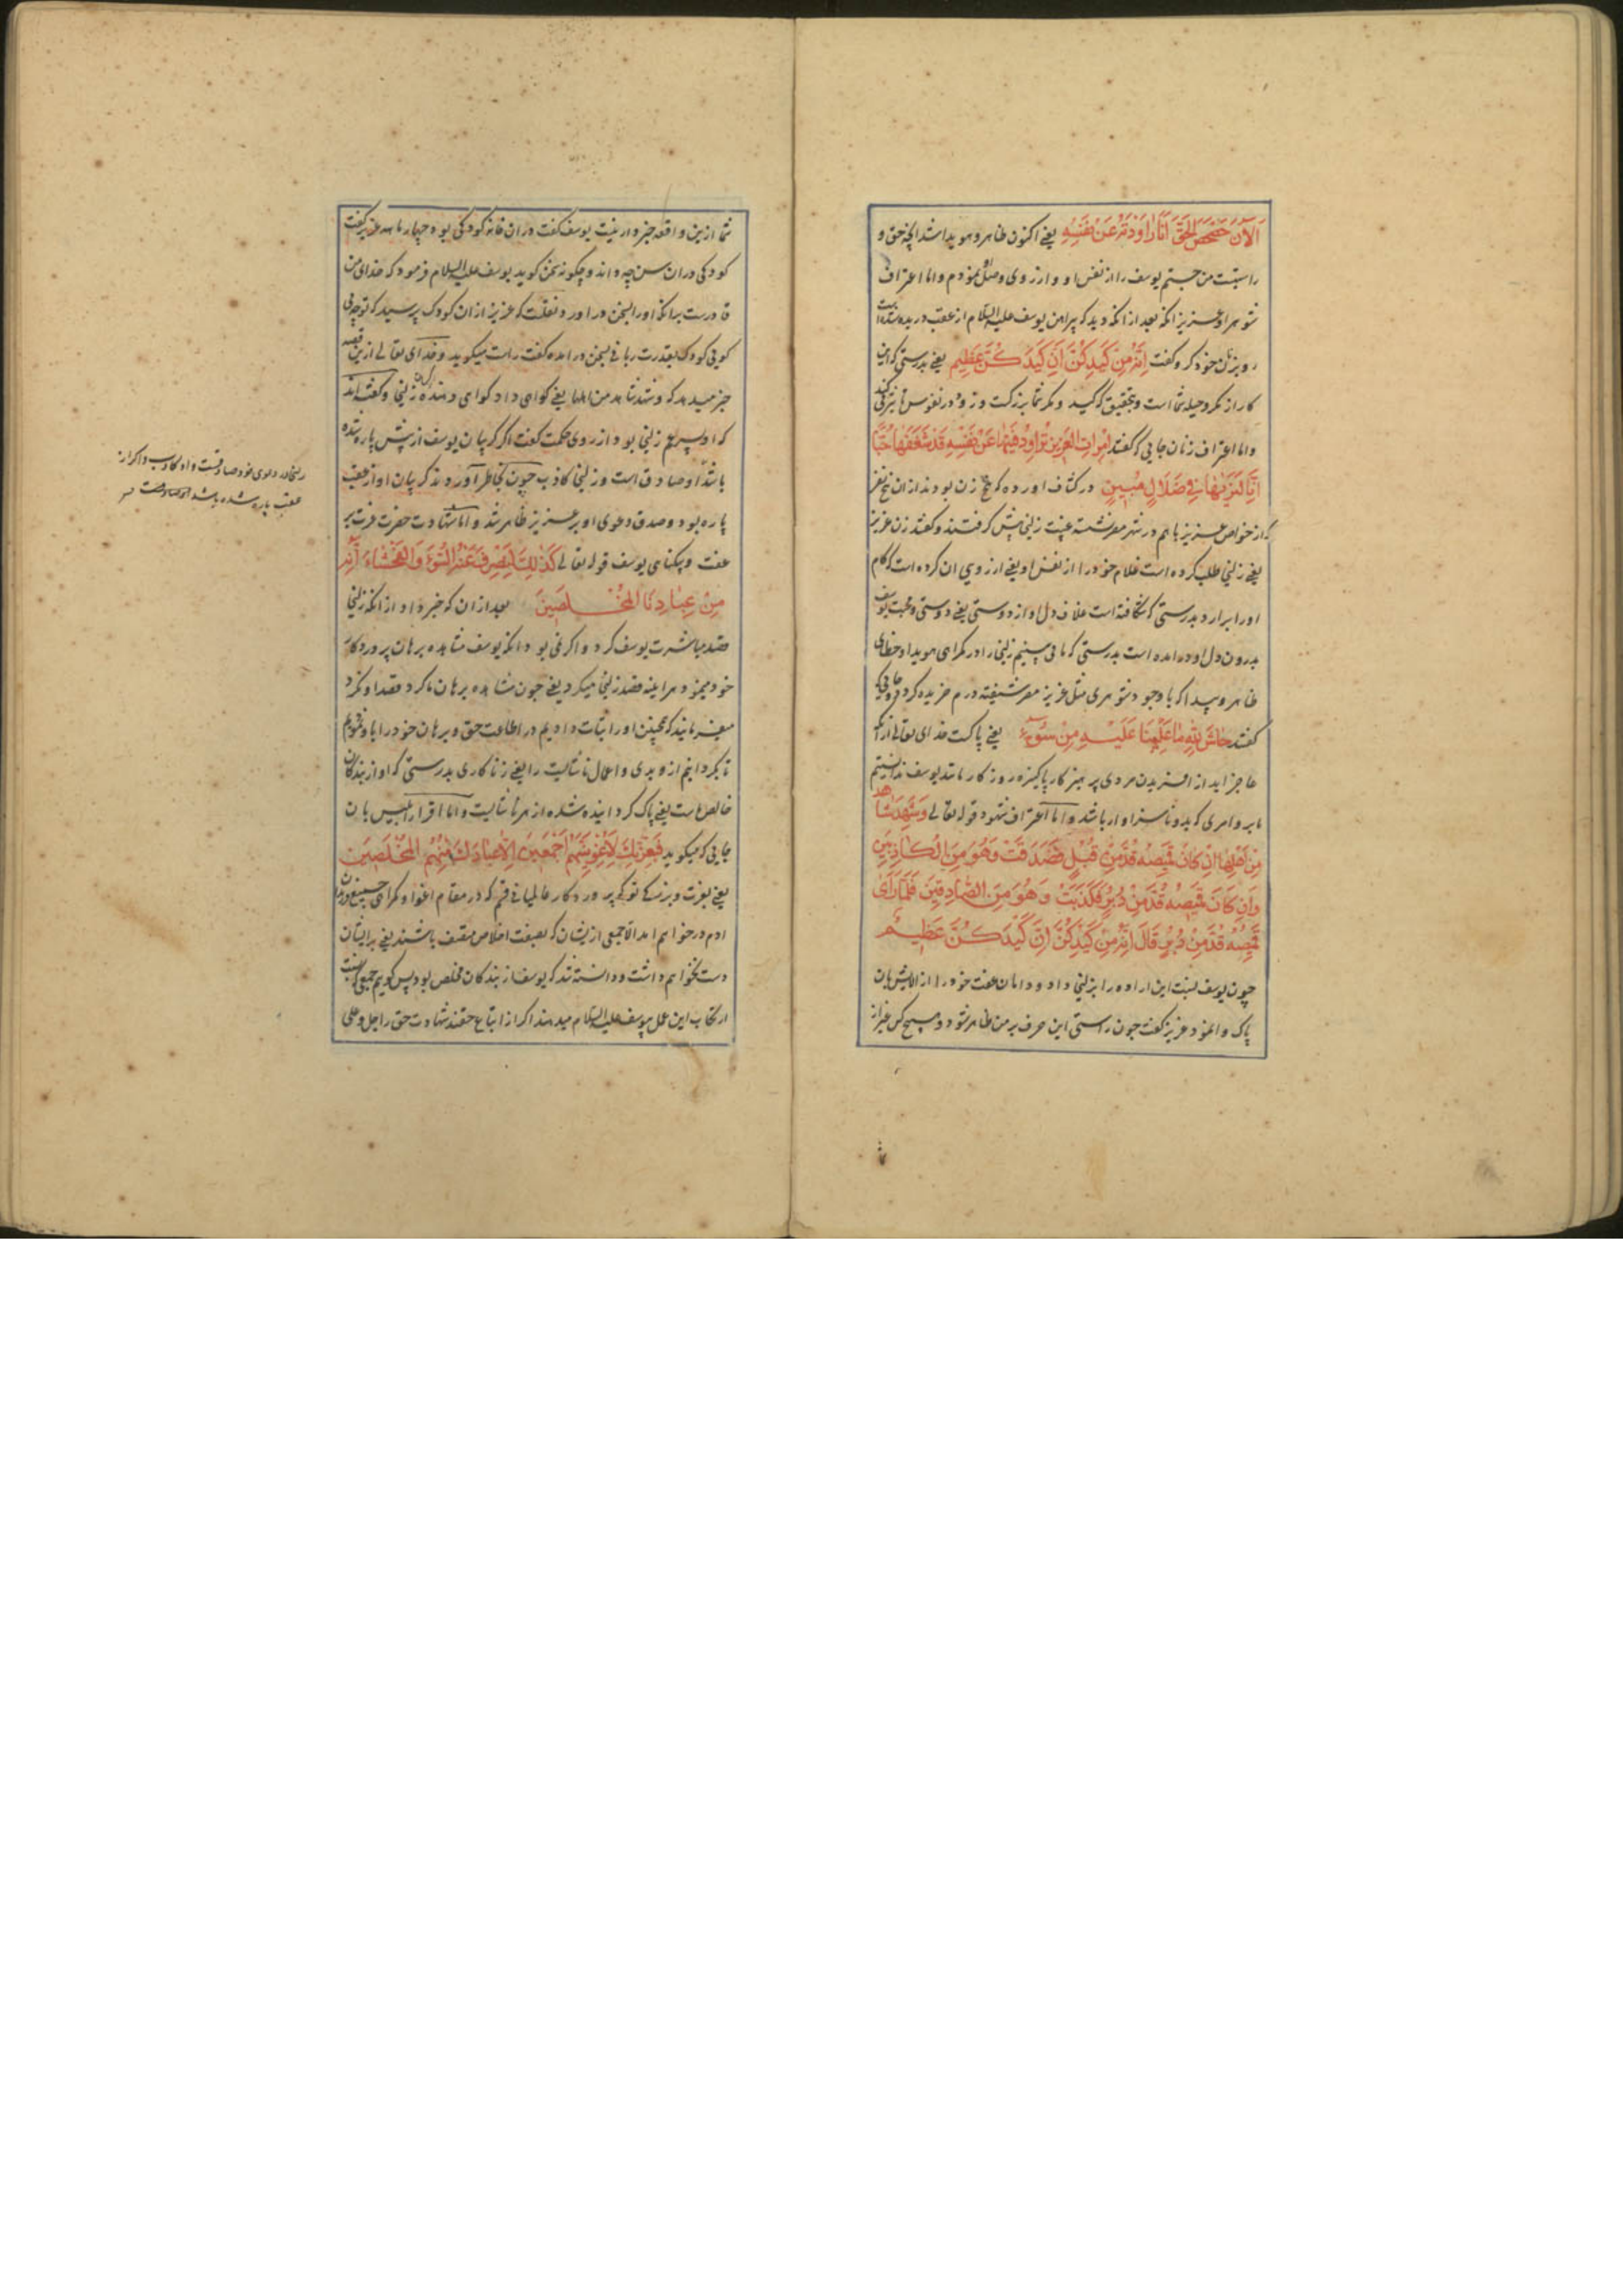 اَلْآنَ حَصْحَصَ الْحَقُّ اَنَا رَاوَدْتُهُ عَنْ نَفْسِهِ یعنی اکنون ظاهر و هویدا شد انچه حق و
راستیست من جستم یوسف را از نفس او و ارزوی وصل نمودم واما اعتراف
شوهر او عزیز انکه بعد از انکه دید که پیراهن یوسف علیه السلام از عقب دریده شده است
رو بزنان خود کرد و گفت اِنَّهُ مِنْ كَيْدِكُنَّ اِنَّ كَيْدَكُنَّ عَظِيم یعنی بدرستی که این
کار از مکر و حیله شما است و بتحقیق که کید و مکر شما بزرکست و زود در نفوس تاثیر می کند
واما اعتراف زنان جایی که گفتند اِمْرَاَتُ الْعَزِيزِ تُرَاوِدُ فَتَيهَا عَنْ نَفْسِهِ قَدْ شَغَفَهَا حُبًّا
اِنَّا لَنَرَيهَا فِي ضَلَالٍ مُبِينٍ در کشاف اورده که پنج زن بودند از ان پنج نفر
که از خواص عزیز با هم در شهر مصر نشسته غیبت زلیخا پیش گرفتند و گفتند زن عزیز
یعنی زلیخا طلب کرده است غلام خود را از نفس او یعنی ارزوی ان کرده است که کام
او را برارد بدرستی که شکافته است غلاف دل او از دوستی یعنی دوستی و محبت یوسف
بدرون دل او در امده است بدرستی که ما می بینیم زلیخا را در کمراهی هویدا و خطای
ظاهر و پیدا که با وجود شوهری مثل عزیز مصر شیفته درم خریده کردد و جایی که
گفتند حَاشَ لِلَّهِ مَا عَلِمْنَا عَلَيْهِ مِنْ سُوءٍ یعنی پاکست خدای تعالی از انکه
عاجز اید از افریدن مردی پرهیزکار پاکیزه روزکار مانند یوسف ندانستیم
ما برو امری که بد و ناسزاوار باشد واما اعتراف شهود قوله تعالی وَشَهِدَ شَاهِدٌ
مِنْ اَهْلِهَا اِنْ كَانَ قَمِيصُهُ قُدَّ مِنْ قُبُلٍ فَصَدَقَتْ وَهُوَ مِنَ الْكَاذِبِينَ
وَاِنْ كَانَ قَمِيصُهُ قُدَّ مِنْ دُبُرٍ فَكَذَبَتْ وَهُوَ مِنَ الصَّادِقِينَ فَلَمَّا رَاٰى
قَمِيصَهُ قُدَّ مِنْ دُبُرٍ قَالَ اِنَّهُ مِنْ كَيْدِكُنَّ اِنَّ كَيْدَكُنَّ عَظِيمٌ
چون یوسف نسبت این اراده را بزلیخا داد و دامان عفت خود را از الایش بان
پاک وا نمود عزیز گفت چون راستی این حرف بر من ظاهر شود و هیچ کس غیر از
شما ازین واقعه خبردار نیست یوسف گفت دران خانه کودکی بود چهار ماهه عزیز گفت
کودکی دران سن چه داند و چکونه سخن کوید یوسف علیه السلام فرمود که خدای من
قادرست برانکه او را بسخن دراورد نقلست که عزیز از ان کودک پرسید که تو چه می
کویی کودک بقدرت ربانی بسخن درامده گفت راست میکوید وخدای تعالی ازین قصه
خبر میدهد که وشهد شاهد من اهلها یعنی کواهی داد کواهی دهنده از کسان زلیخا و گفته اند
که او پسر عم زلیخا بود از روی حکمت گفت اگر کریبان یوسف از پیش پاره شده
باشد او صادق است و زلیخا کاذب چون بخاطر آوردند کریبان او از عقب
پاره بود و صدق دعوی او بر عزیز ظاهر شد واما شهادت حضرت عزت بر
عفت و بیکناهی یوسف قوله تعالی كَذٰلِكَ لِنَصْرِفَ عَنْهُ السُّوءَ وَالْفَحْشَاءَ اِنَّهُ
مِنْ عِبَادِنَا الْمُخْلَصِينَ بعد از ان که خبر داد از انکه زلیخا
قصد مباشرت یوسف کرد و اگر نمی بود انکه یوسف مشاهده برهان پروردکار
خود مینمود هراینه قصد زلیخا میکرد یعنی چون مشاهده برهان ما کرد قصد او نکرد
میفرماید که همچنین او را ثبات دادیم در اطاعت حق و برهان خود را باو نمودیم
تا بکردانیم ازو بدی و اعمال ناشایست را یعنی زناکاری بدرستی که او از بندکان
خالص ماست یعنی پاک کردانیده شده از هر ناشایست واما اقرار ابلیس بان
جایی که میکوید فَبِعِزَّتِكَ لَاُغْوِيَنَّهُمْ اَجْمَعِينَ اِلَّا عِبَادَكَ مِنْهُمُ الْمُخْلَصِينَ
یعنی بعزت و بزرکی تو که پروردکار عالمیانی قسم که در مقام اغوا و کمراهی جمیع فرزندان
ادم در خواهم امد الا جمعی از یشان که بصفت اخلاص متصف باشند یعنی برایشان
دست نخواهم داشت و دانسته شد که یوسف از بندکان مخلص بود پس کویم جمعی که نسبت
ارتکاب این عمل بیوسف علیه السلام میدهند اگر از اتباع حقند شهادت حق را جل و علی
زلیخا در دعوی خود صادقست و او کاذب و اکر از
عقب پاره شده باشد او صادقست